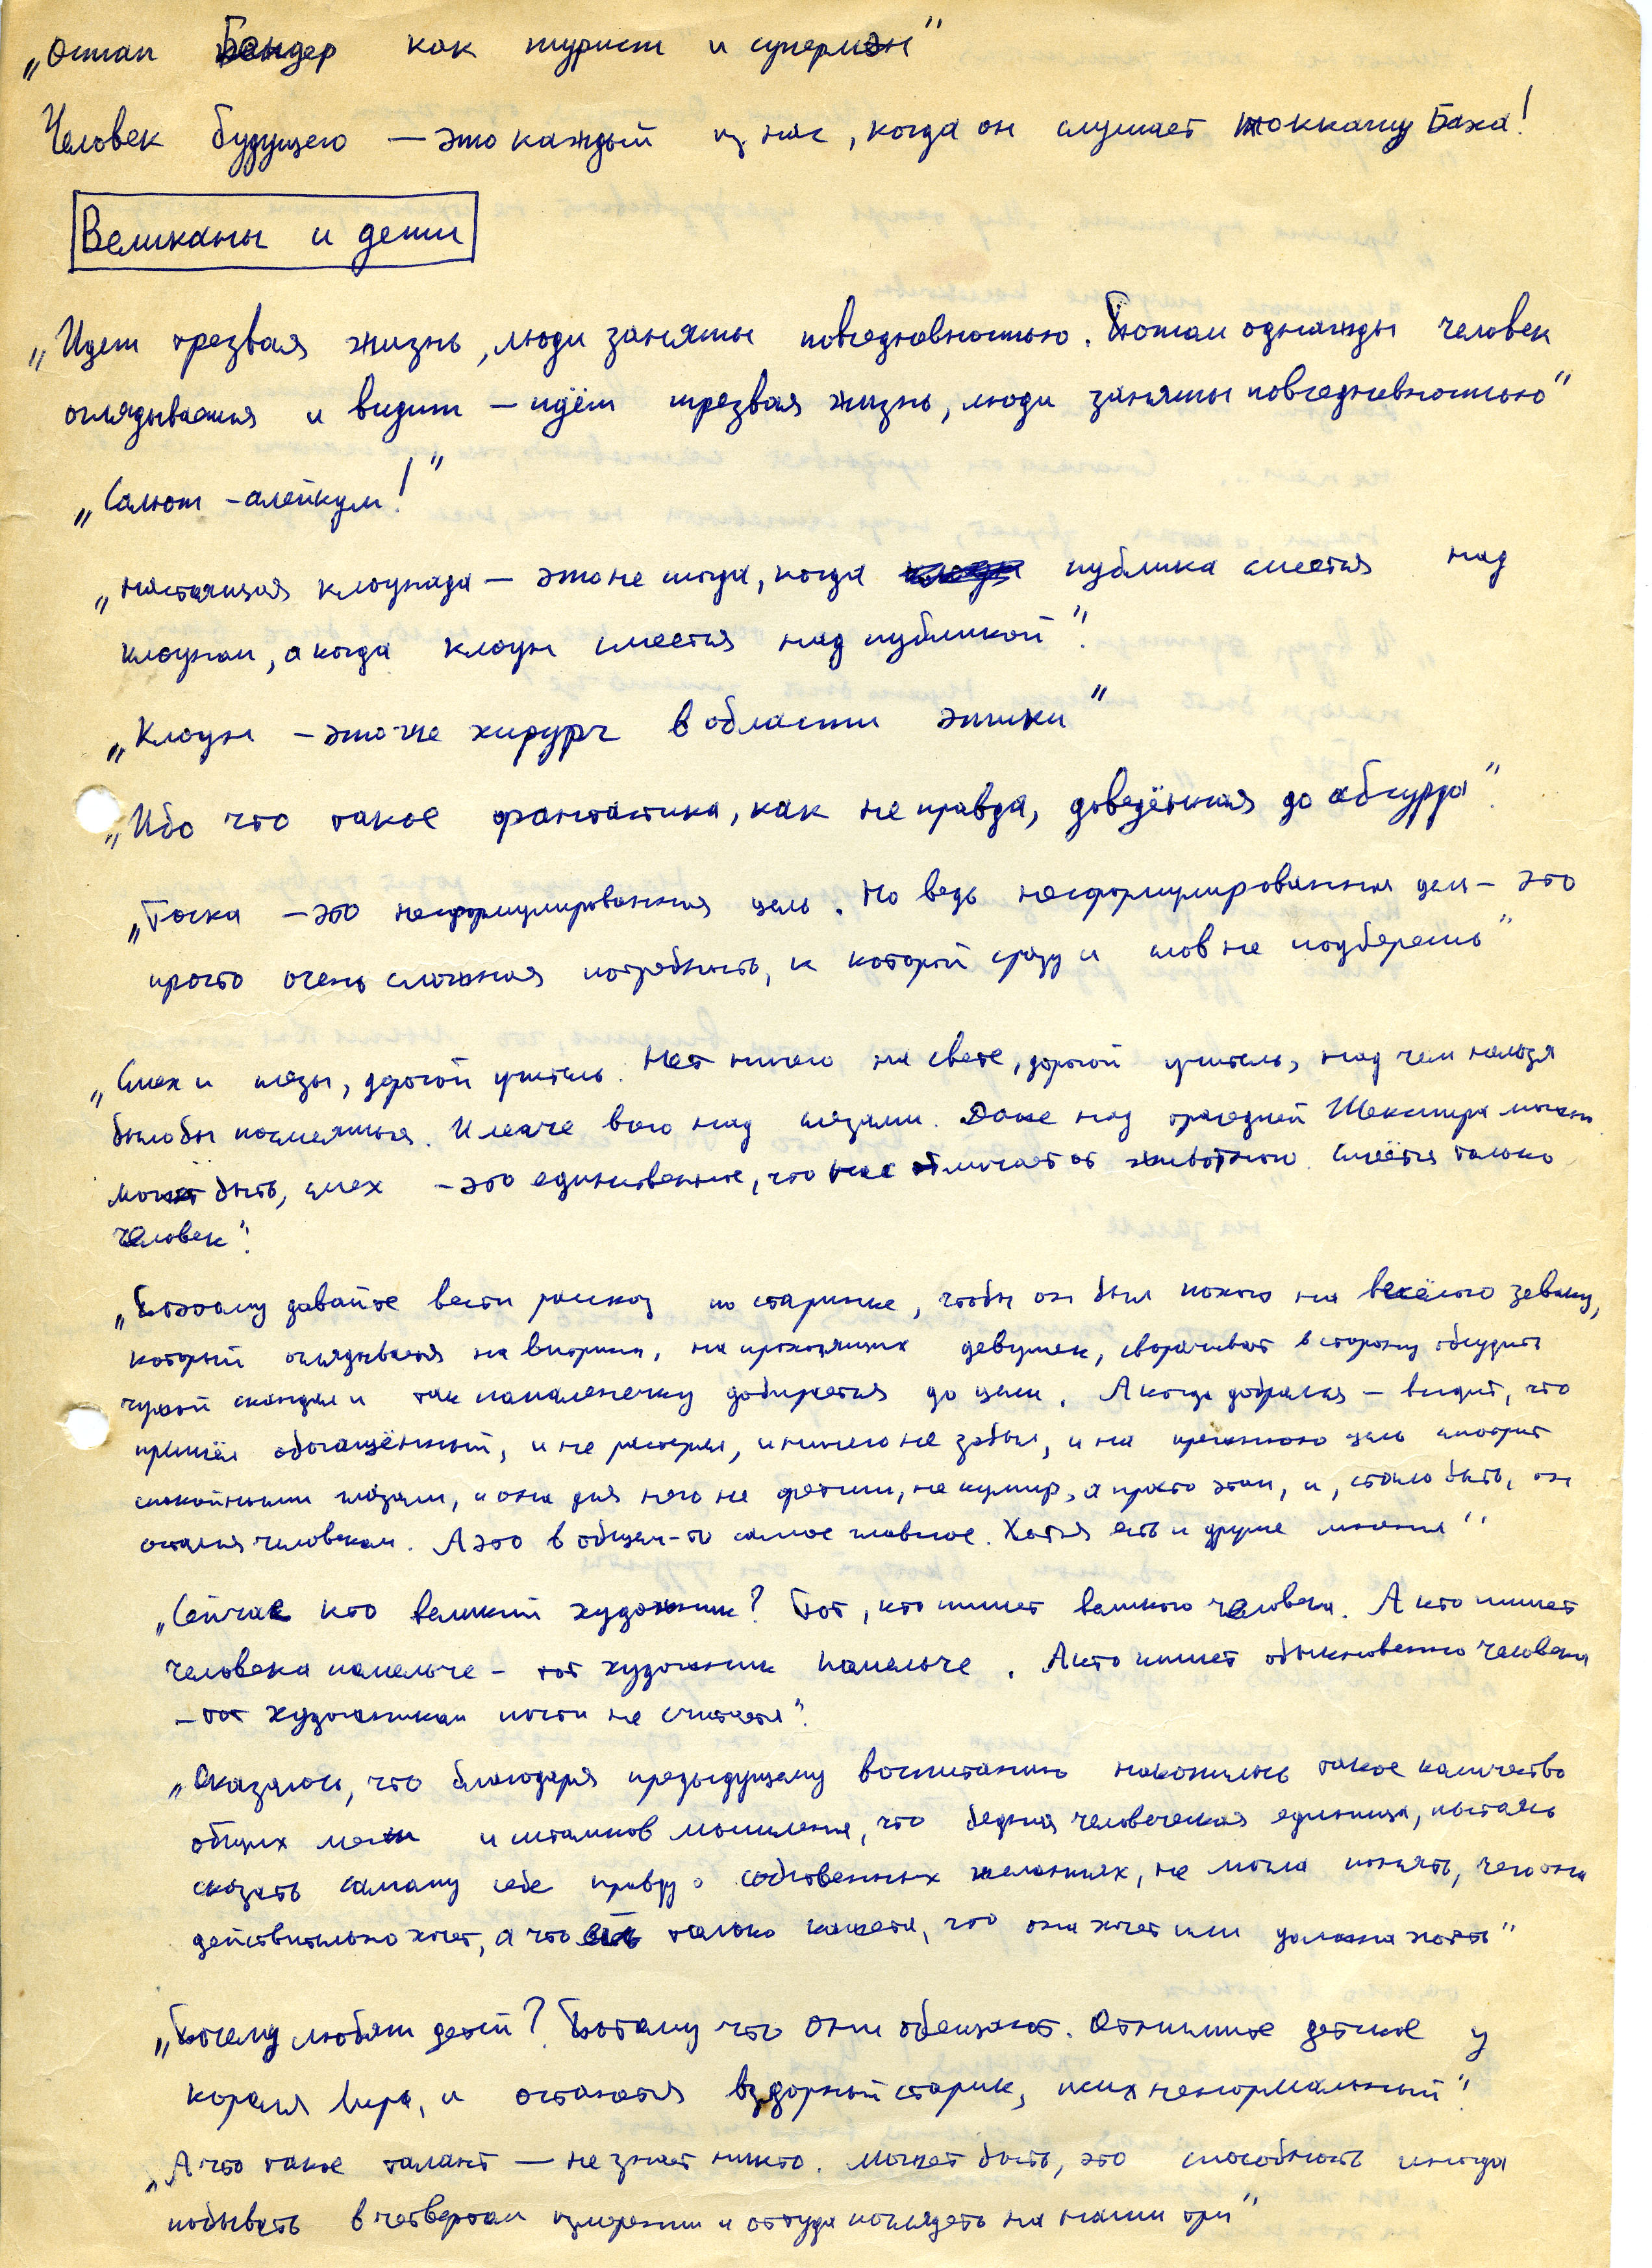 „Остап Бендер как турист и супермэн"
Человек будущего — это каждый из нас, когда он слушает токкату Баха!
Великаны и дети
„Идет трезвая жизнь, люди заняты повседневностью. Потом однажды человек
оглядывается и видит — идёт трезвая жизнь, люди заняты повседневностью"
„Салют - алейкум!"
„настоящая клоунада — это не тогда, когда публика смеется над
клоуном, а когда клоун смеется над публикой".
„Клоун — это же хирург в области этики"
„Ибо что такое фантастика, как не правда, доведённая до абсурда".
„Тоска — это несформулированная цель. Но ведь несформулированная цель — это
просто очень сложная потребность, к которой сразу и слов не подберешь"
„Смех и слезы, дорогой учитель. Нет ничего на свете, дорогой учитель, над чем нельзя
было бы посмеяться. И легче всего над слезами. Даже над трагедией Шекспира можно.
Может быть, смех — это единственное, что нас отличает от животного. Смеётся только
человек".
„Поэтому давайте вести рассказ по старинке, чтобы он был похож на весёлого зеваку,
который оглядывается на витрины, на проходящих девушек, сворачивает в сторону обсудить
чужой скандал и так помаленечку добирается до цели. А когда добрался — видит, что
пришёл обогащённый, и не растерял, и ничего не забыл, и на прежнюю цель смотрит
спокойными глазами, и она для него не фетиш, не кумир, а просто этап, и, стало быть, он
остался человеком. А это в общем-то самое главное. Хотя есть и другие мнения"
„Сейчас кто великий художник? Тот, кто пишет великого человека. А кто пишет
человека помельче — тот художник помельче. А кто пишет обыкновенного человека
— тот художником почти не считается".
„Оказалось, что благодаря предыдущему воспитанию накопилось такое количество
общих мест и штампов мышления, что бедная человеческая единица, пытаясь
сказать самому себе правду о собственных желаниях, не могла понять, чего она
действительно хочет, а что ей только кажется, что она хочет или должна хотеть"
„Почему любят детей? Потому что они обещают. Отнимите детское у
короля Лира, и останется вздорный старик, псих ненормальный".
„А что такое талант — не знает никто. Может быть, это способность иногда
побывать в четвертом измерении и оттуда поглядеть на наши три"